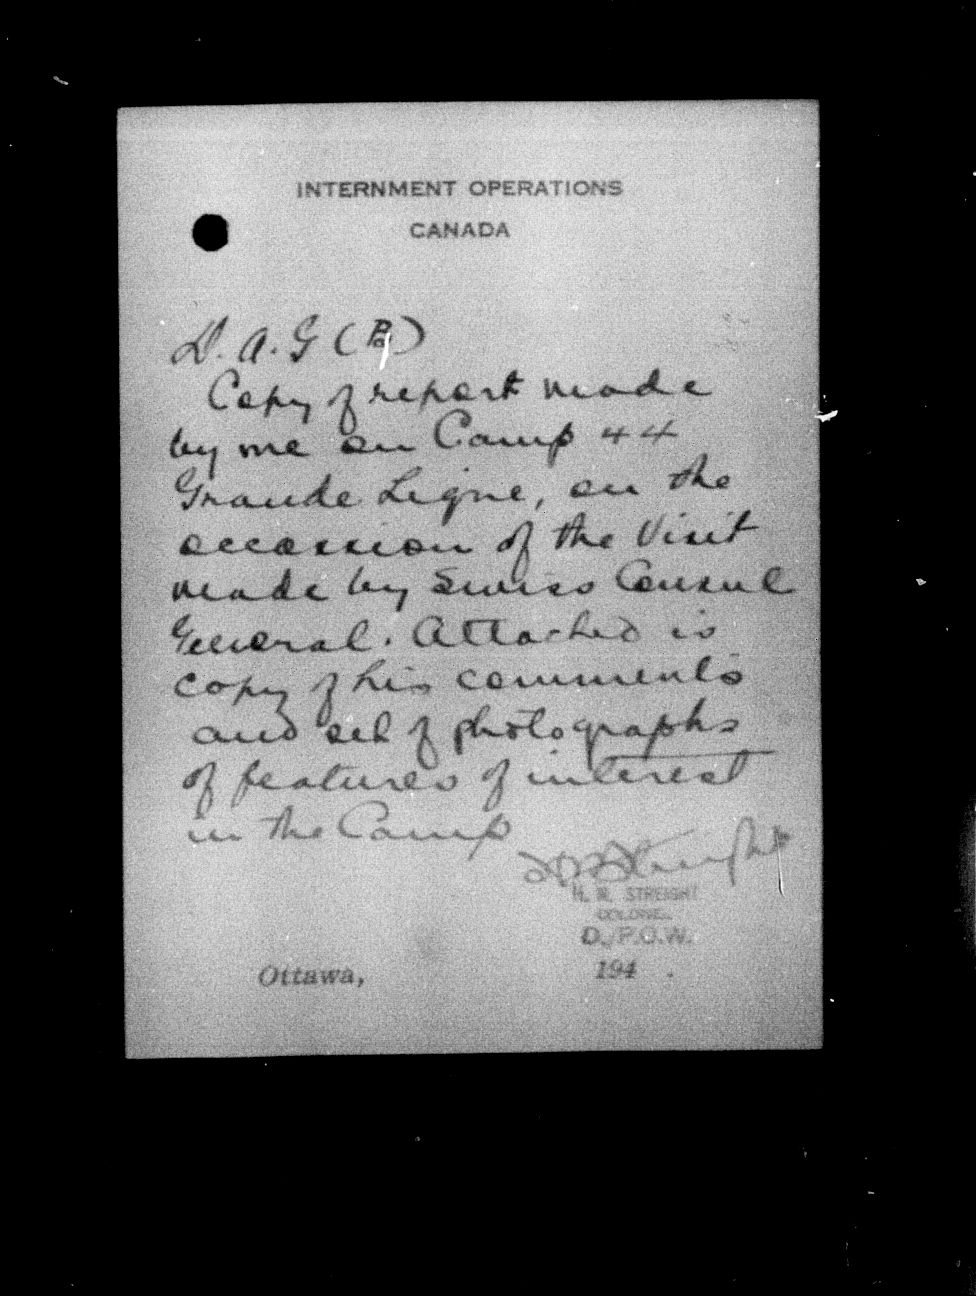 INTERNMENT OPERATIONS
CANADA
D.A.G (B)
Copy of report made
by me on Camp 44
Grande Ligne, on the
occassion of the Visit
made by Swiss Consul
General. Attached is
copy of his comments
and set of photographs
of features of interest
in the Camp
H. N. STREIGHT
COLONEL
D./P.O.W.
Ottawa, 194 .